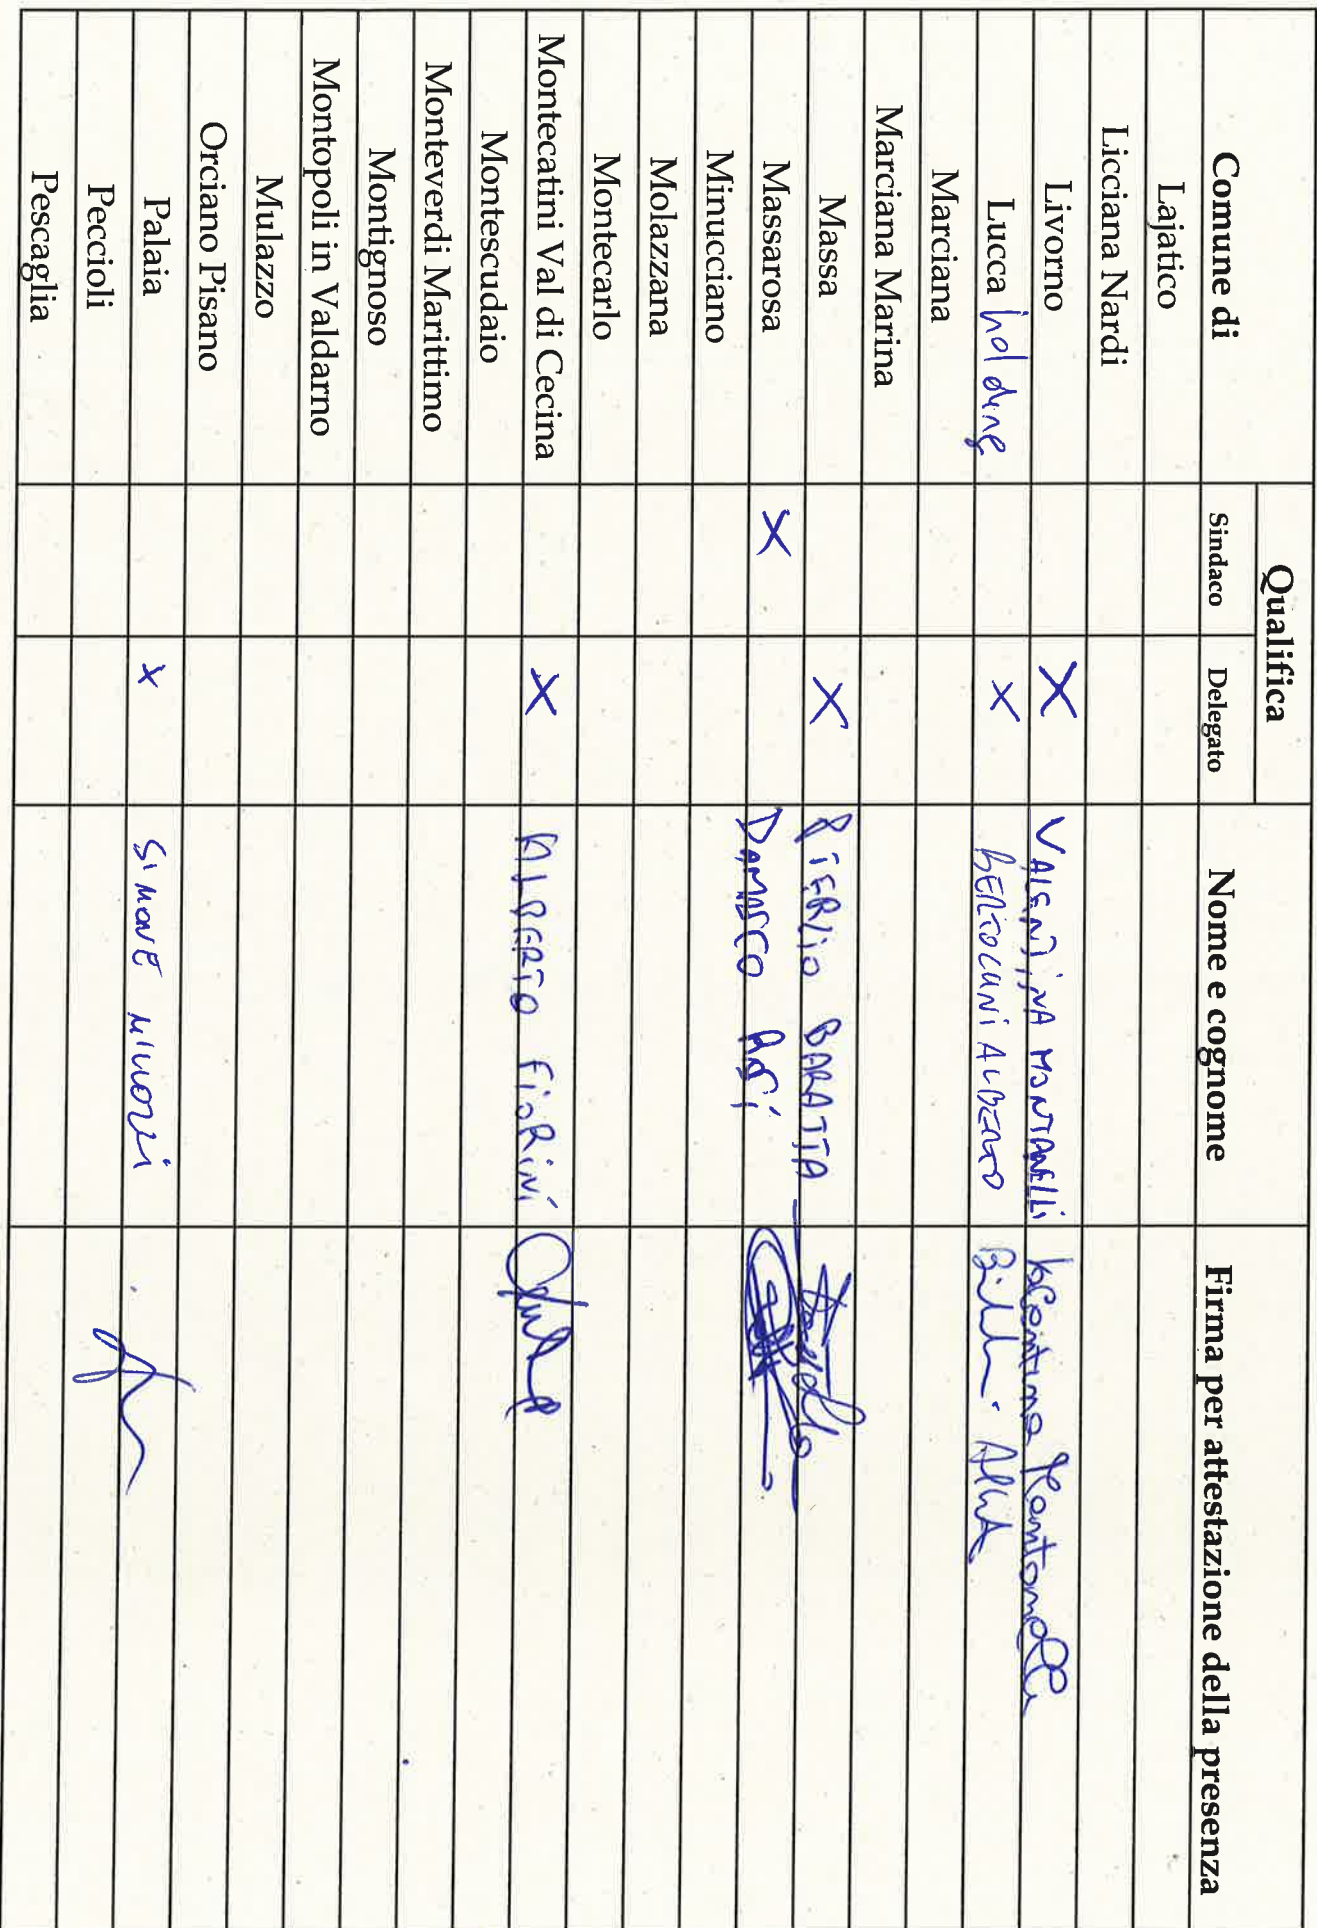 Comune di Qualifica Nome e cognome Firma per attestazione della presenza
Sindaco Delegato
Lajatico
Licciana Nardi
Livorno X VALENTINA MONTANELLI Valentina Montanelli
Lucca holding X BERTOCCINI ALBERTO
Marciana
Marciana Marina
Massa X PIERLIO BARATTA
Massarosa X DAMASCO
Minucciano
Molazzana
Montecarlo
Montecatini Val di Cecina X ALBERTO FIORINI
Montescudaio
Monteverdi Marittimo
Montignoso
Montopoli in Valdarno
Mulazzo
Orciano Pisano
Palaia X SIMONE
Peccioli
Pescaglia